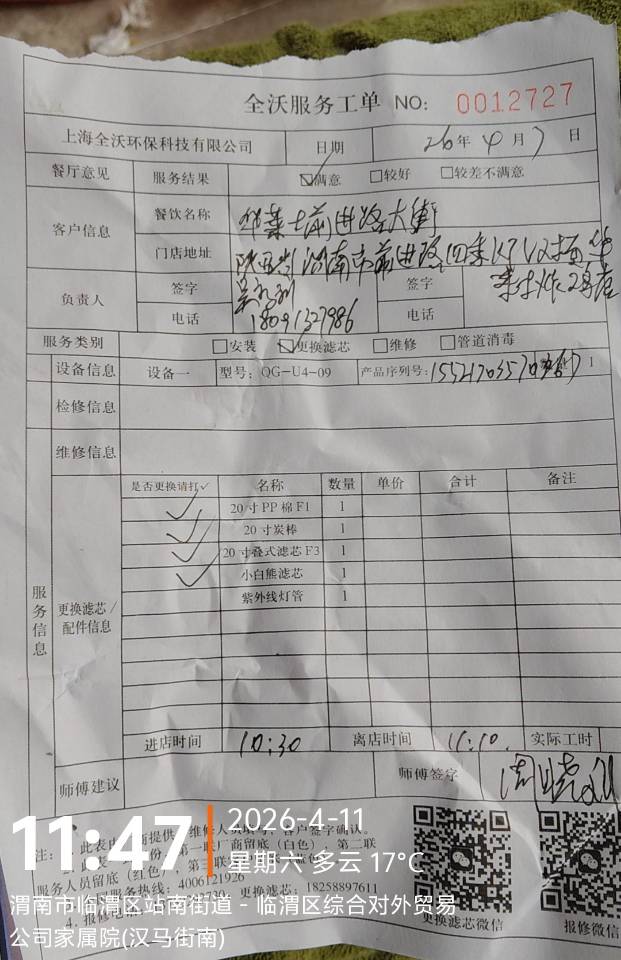 全沃服务工单 NO: 0012727
上海全沃环保科技有限公司 日期 26年4月7日
餐厅意见 服务结果 ☑满意 □较好 □较差不满意
客户信息 餐饮名称 华莱士前进路大街
门店地址 陕西省渭南市前进路四季KTV对面华
莱士炸2号店
负责人 签字 签字
电话 18091327986 电话
服务类别 □安装 ☑更换滤芯 □维修 □管道消毒
设备信息 设备一 型号: QG-U4-09 产品序列号:
检修信息
维修信息
服务信息
更换滤芯/
配件信息
是否更换请打✓ 名称 数量 单价 合计 备注
✓ 20寸PP棉F1 1
✓ 20寸炭棒 1
✓ 20寸叠式滤芯F3 1
✓ 小白熊滤芯 1
紫外线灯管 1
进店时间 10:30 离店时间 11:10. 实际工时
师傅建议 师傅签字
11:47 2026-4-11
星期六 多云 17℃
注: 客户签字确认。
厂商留底(白色), 第二联
服务人员留底(红色), 第三联
服务热线: 4006121926
更换滤芯: 18258897611
4. 报修
更换滤芯微信 报修微信
渭南市临渭区站南街道-临渭区综合对外贸易
公司家属院(汉马街南)